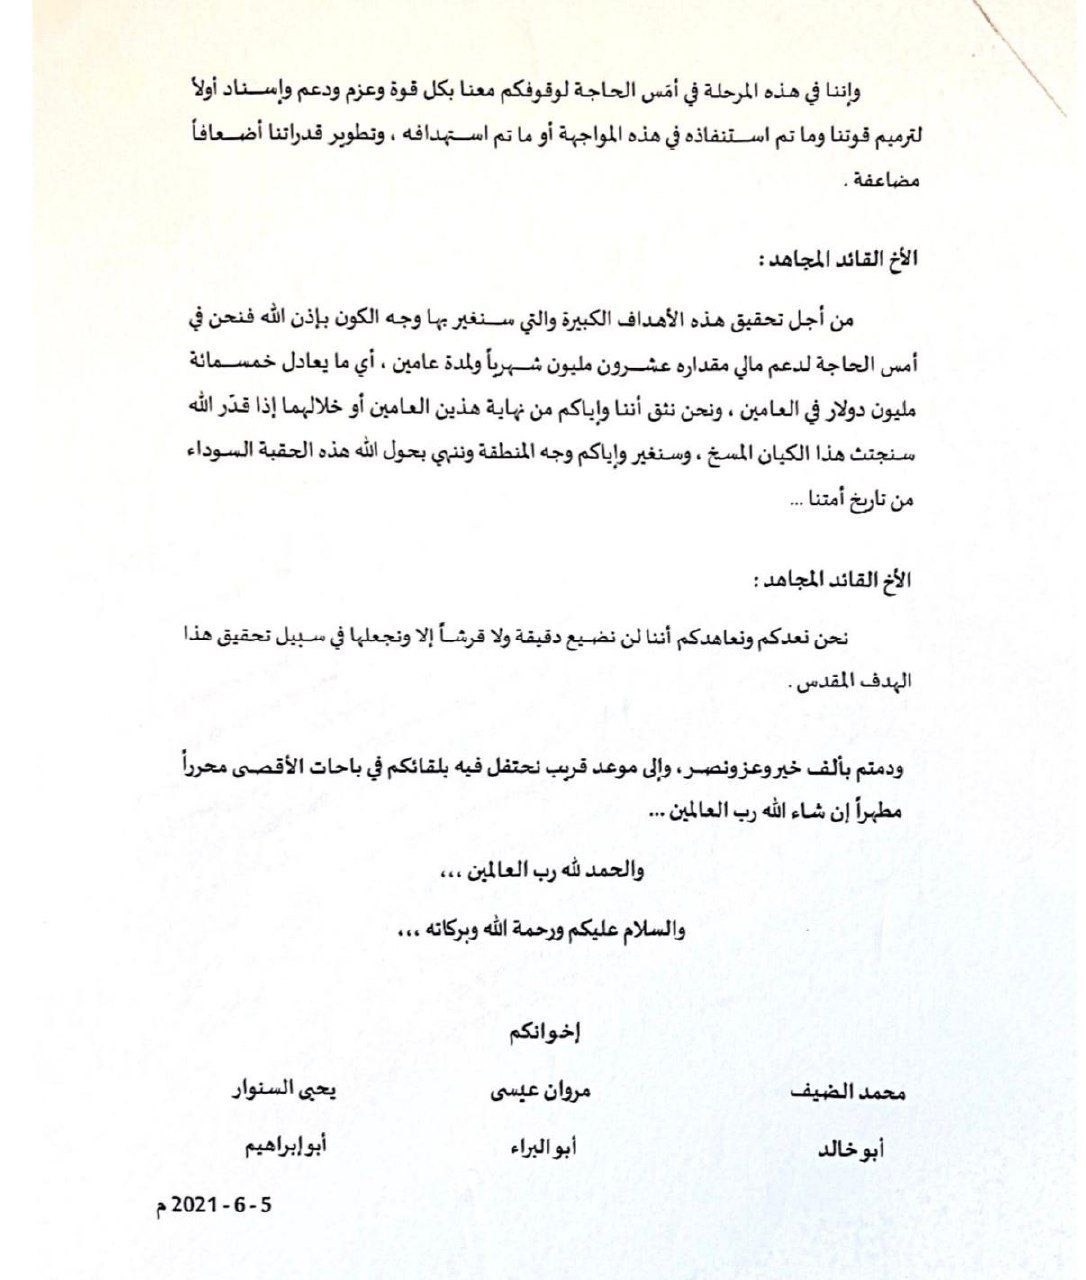 وإننا في هذه المرحلة في أمَس الحاجة لوقوفكم معنا بكل قوة وعزم ودعم وإسناد أولاً
لترميم قوتنا وما تم استنفاذه في هذه المواجهة أو ما تم استهدافه ، وتطوير قدراتنا أضعافاً
مضاعفة .
الأخ القائد المجاهد :
من أجل تحقيق هذه الأهداف الكبيرة والتي سنغير بها وجه الكون بإذن الله فنحن في
أمس الحاجة لدعم مالي مقداره عشرون مليون شهرياً ولمدة عامين ، أي ما يعادل خمسمائة
مليون دولار في العامين ، ونحن نثق أننا وإياكم من نهاية هذين العامين أو خلالهما إذا قدّر الله
سنجتث هذا الكيان المسخ ، وسنغير وإياكم وجه المنطقة وننهي بحول الله هذه الحقبة السوداء
من تاريخ أمتنا ...
الأخ القائد المجاهد :
نحن نعدكم ونعاهدكم أننا لن نضيع دقيقة ولا قرشاً إلا ونجعلها في سبيل تحقيق هذا
الهدف المقدس .
ودمتم بألف خير وعز ونصر ، وإلى موعد قريب نحتفل فيه بلقائكم في باحات الأقصى محرراً
مطهراً إن شاء الله رب العالمين ...
والحمد لله رب العالمين ،،،
والسلام عليكم ورحمة الله وبركاته ،،،
إخوانكم
محمد الضيف مروان عيسى يحيى السنوار
أبو خالد أبو البراء أبو إبراهيم
5 - 6 - 2021 م